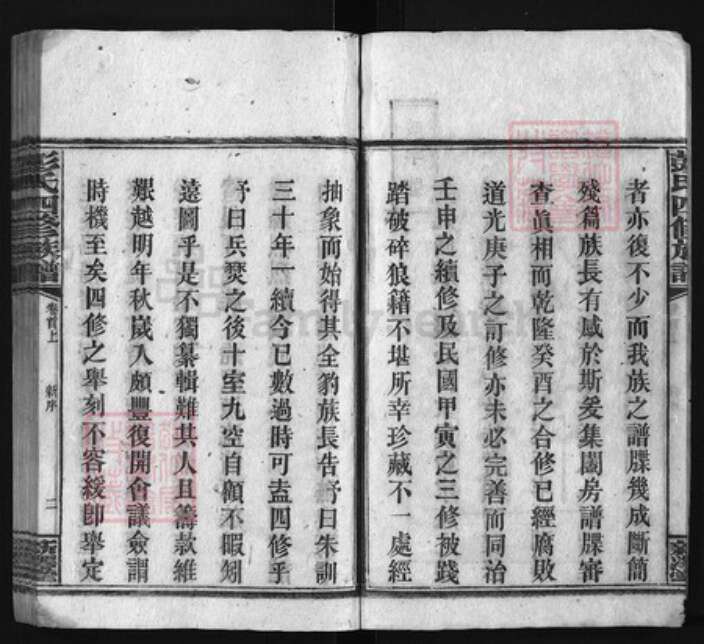 者亦復不少而我族之譜牒幾成斷簡
殘篇族長有感於斯爰集闔房譜牒審
查眞相而乾隆癸酉之合修已經腐敗
道光庚子之訂修亦未必完善而同治
壬申之續修及民國甲寅之三修被踐
踏破碎狼藉不堪所幸珍藏不一處經
抽象而始得其全豹族長告予曰朱訓
三十年一續今已數過時可盍四修乎
予曰兵燹之後十室九空自顧不暇矧
遠圖乎是不獨纂輯難其人且籌款維
艱越明年秋歲入頗豐復開會議僉謂
時機至矣四修之舉刻不容緩卽舉定
彭氏四修族譜
卷首上
新序
二
彭氏四修族譜